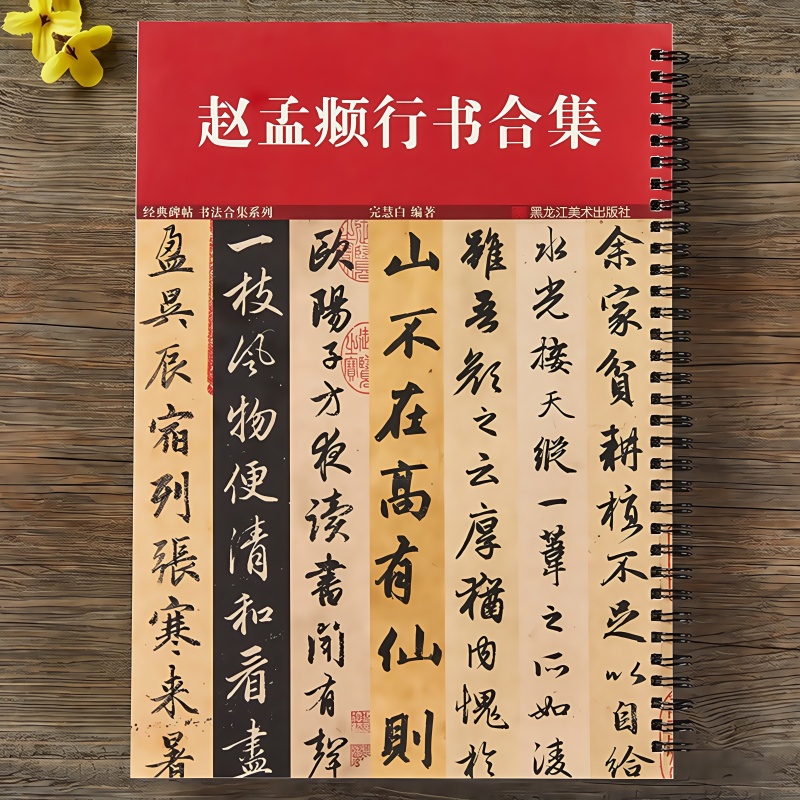 赵孟𫖯行书合集
经典碑帖 书法合集系列
完慧白 编著
黑龙江美术出版社
余家貧耕植不足以自給
水光接天縱一葦之所如凌
雖吾顏之云厚猶内愧於
山不在高有仙則
歐陽子方夜讀書聞有聲
一枝風物便清和看盡
盈昃辰宿列張寒来暑